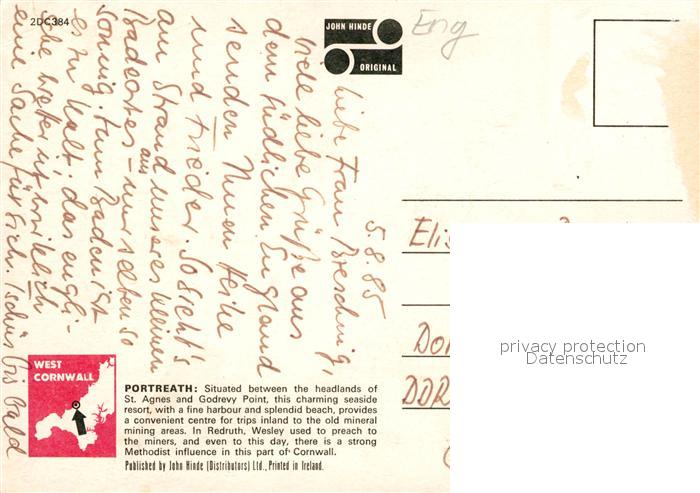 2DC384
JOHN HINDE
ORIGINAL
Eng
5.8.85
Liebe Frau
viele liebe Grüße aus
dem südlichen England
senden Ihnen Heike
und Frieder. So sieht's
am Strand unseres kleinen
Badeortes aus – nur selten so
sonnig. Zum Baden ist
es zu kalt. das engli-
sche Wetter ist wirklich
eine Sache für sich. Tschüs bis bald
Eli
Do
DDR
privacy protection
Datenschutz
WEST
CORNWALL
PORTREATH: Situated between the headlands of
St. Agnes and Godrevy Point, this charming seaside
resort, with a fine harbour and splendid beach, provides
a convenient centre for trips inland to the old mineral
mining areas. In Redruth, Wesley used to preach to
the miners, and even to this day, there is a strong
Methodist influence in this part of Cornwall.
Published by John Hinde (Distributors) Ltd., Printed in Ireland.